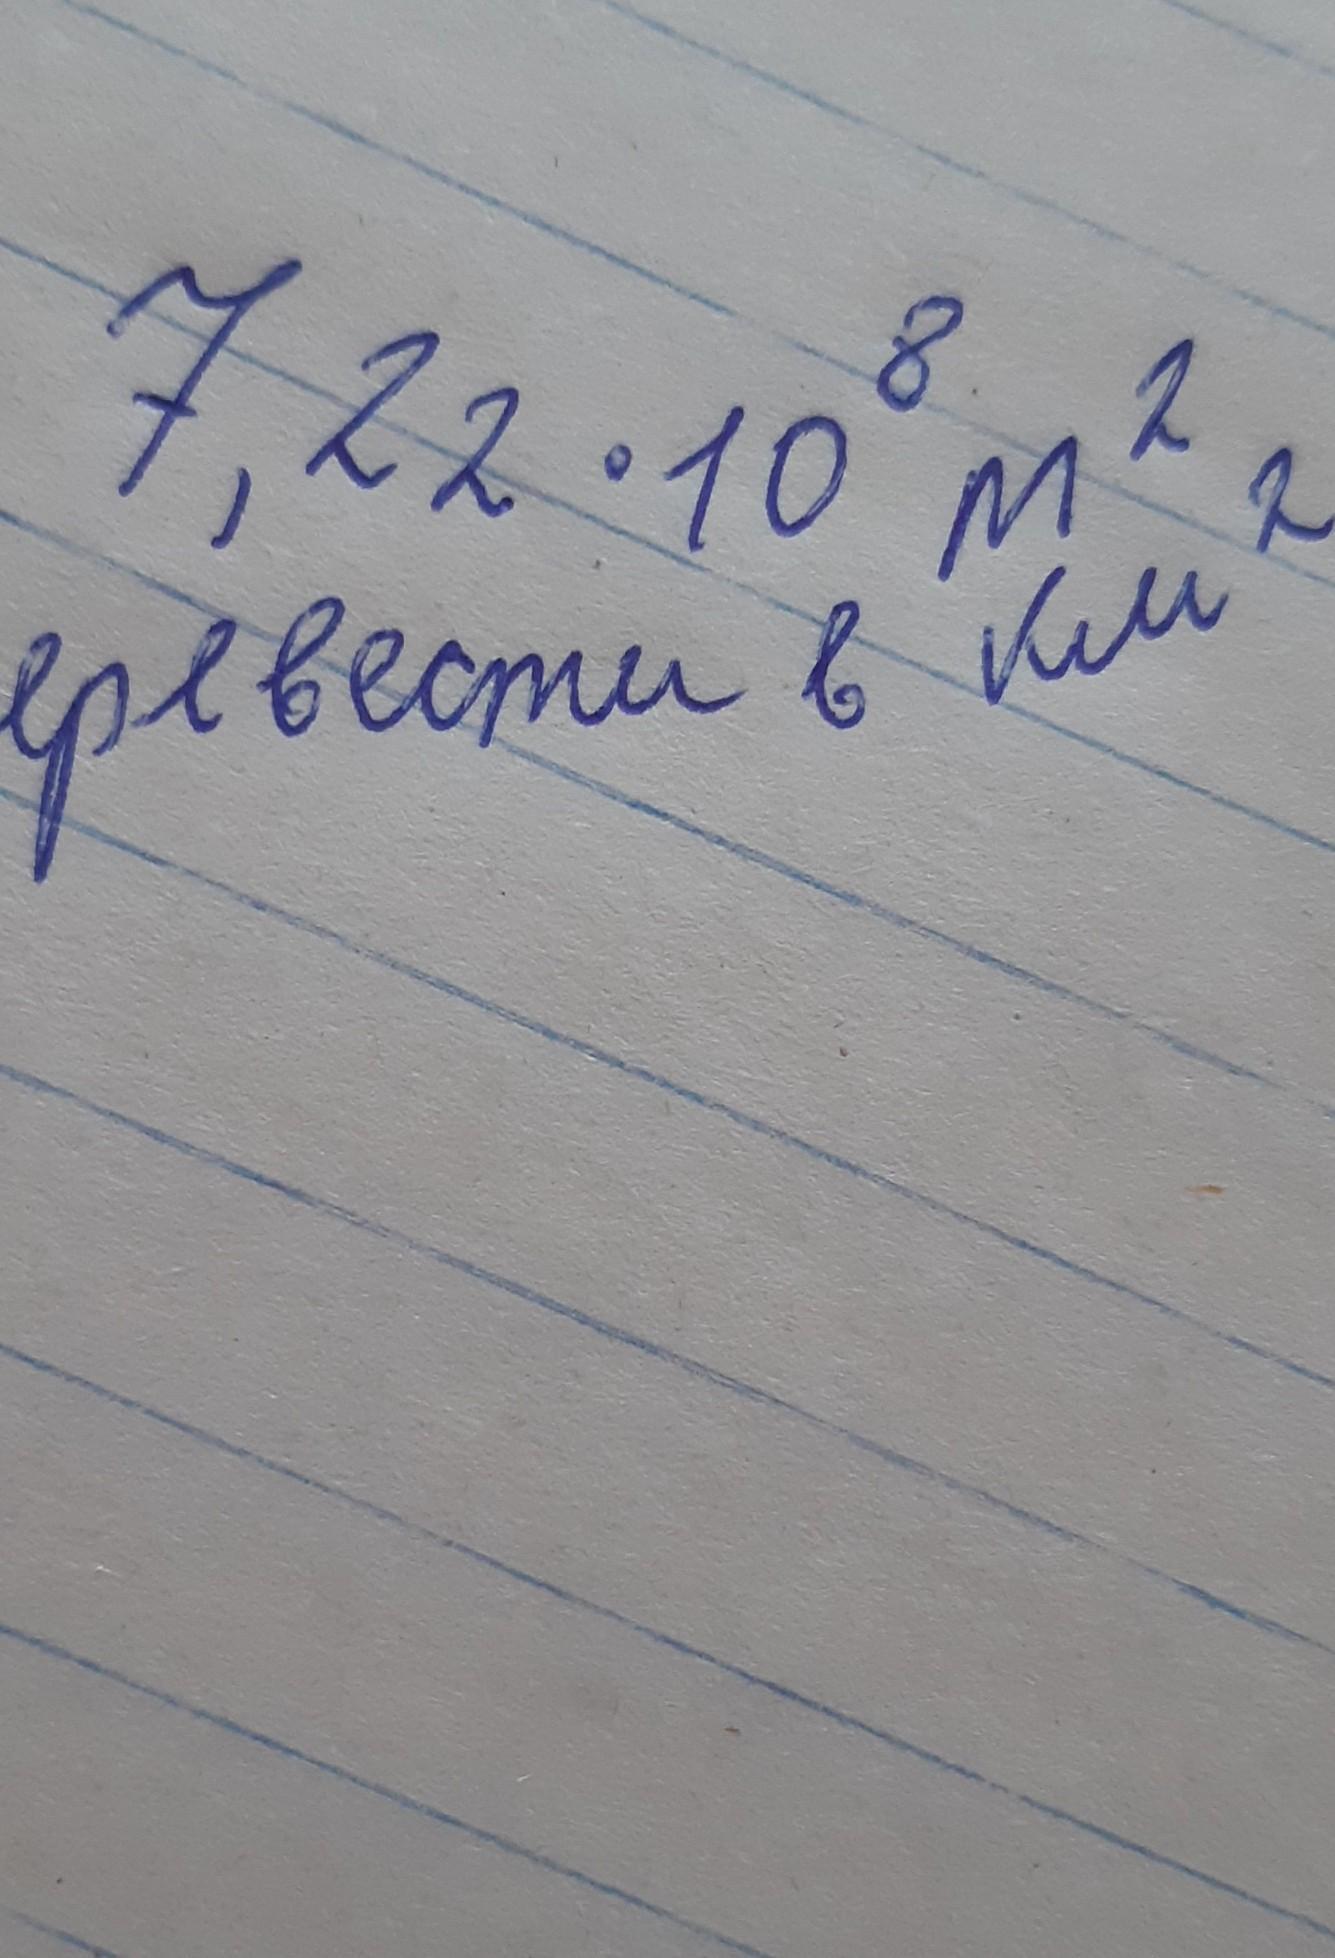 7,22 · 10⁸ м²
еревести в км²